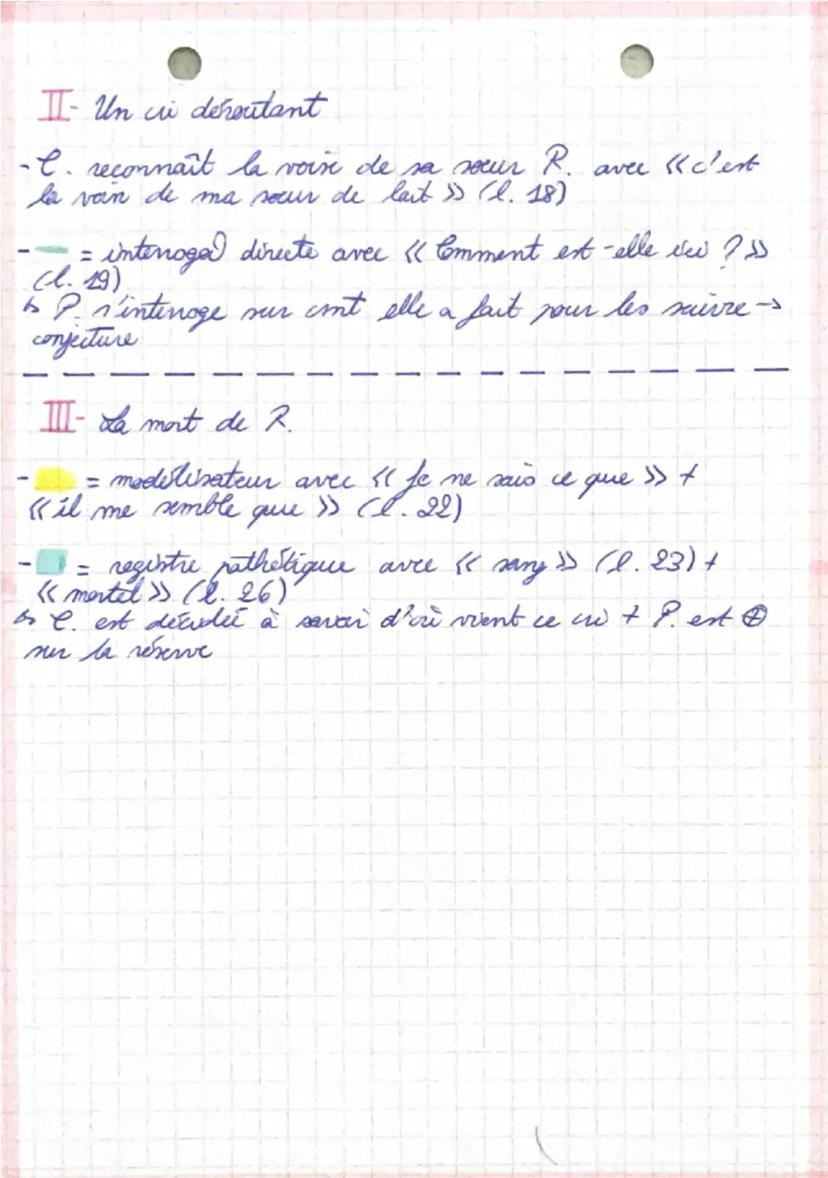 II- Un cri déroutant
- C. reconnaît la voix de sa sœur R. avec « c'est
la voix de ma sœur de lait » (l. 18)
- = interroga° directe avec « Comment est-elle ici ? »
(l. 19)
↳ P. s'interroge sur cmt elle a fait pour les suivre →
conjecture
III- La mort de R.
- = modélisateur avec « Je ne sais ce que » +
« il me semble que » (l. 22)
- = registre pathétique avec « sang » (l. 23) +
« mortel » (l. 26)
↳ C. est décidée à savoir d'où vient ce cri + P. est ⊕
sur la réserve